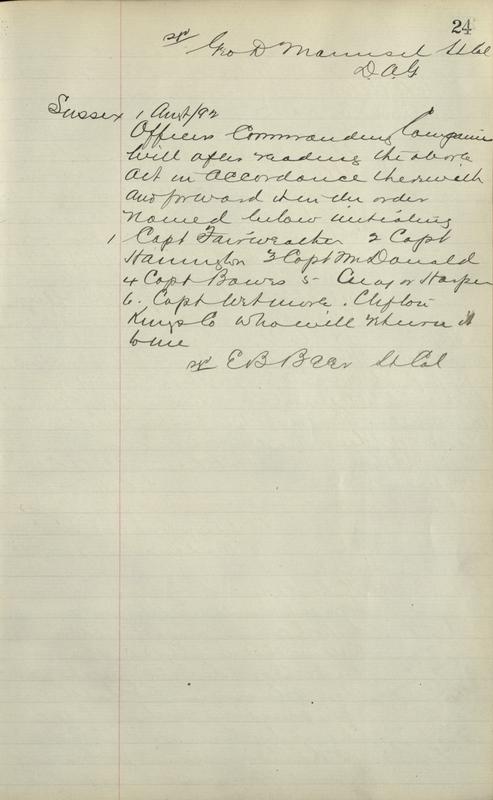 24
Geo D Maunsel Lt Col
D.A.G
Sussex 1 Augt/92
Officers Commanding Companies
will after reading the above
act in accordance therewith
and forward it in the order
named below initialing
1 Capt Fairweather 2 Capt
Harrington 3 Capt McDonald
4 Capt Bowes 5 Major Harper
6. Capt Wetmore. Clifton
Kings Co who will return it
to me
E B Beer Lt Col